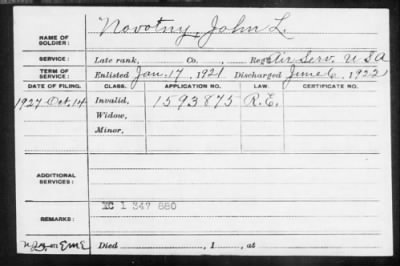 NAME OF SOLDIER: Novotny, John L.
SERVICE: Late rank, Co. , Reg't Air Serv. USA
TERM OF SERVICE: Enlisted Jan. 17, 1921 Discharged June 6, 1922
DATE OF FILING. CLASS. APPLICATION NO. LAW. CERTIFICATE NO.
1927 Oct. 14 Invalid, 1593875 R.E.
Widow,
Minor,
ADDITIONAL SERVICES:
XC 1 347 880
REMARKS:
Died , 1 , at